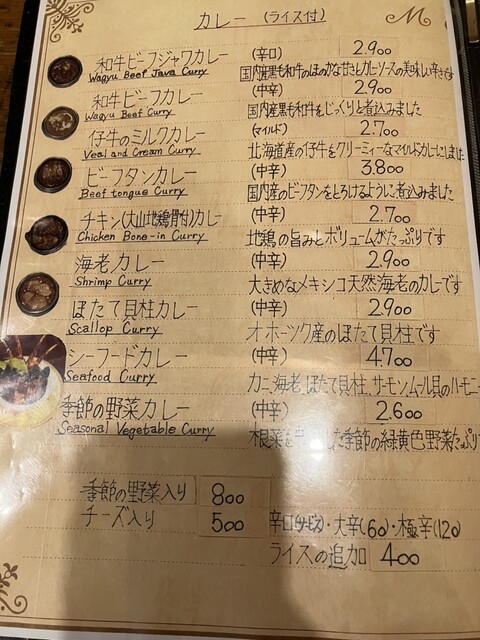 カレー (ライス付)
M
和牛ビーフジャワカレー (辛口) 2.900
Wagyu Beef Java Curry 国内産黒毛和牛のほのかな甘さとカレーソースの美味しい辛さです
和牛ビーフカレー (中辛) 2.900
Wagyu Beef Curry 国内産黒毛和牛をじっくりと煮込みました
仔牛のミルクカレー (マイルド) 2.700
Veal and Cream Curry 北海道産の仔牛をクリーミィーなマイルドカレーにしました
ビーフタンカレー (中辛) 3.800
Beef tongue Curry 国内産のビーフタンをとろけるように煮込みました
チキン(大山地鶏骨付)カレー (中辛) 2.700
Chicken Bone-in Curry 地鶏の旨みとボリュームがたっぷりです
海老カレー (中辛) 2.900
Shrimp Curry 大きめなメキシコ天然海老のカレーです
ほたて貝柱カレー (中辛) 2.900
Scallop Curry オホーツク産のほたて貝柱です
シーフードカレー (中辛) 4.700
Seafood Curry カニ、海老、ほたて貝柱、サーモン、ムール貝のハーモニー
季節の野菜カレー (中辛) 2.600
Seasonal Vegetable Curry 根菜を した季節の緑黄色野菜たっぷり
季節の野菜入り 800
チーズ入り 500 辛口(サービス)・大辛(60)・極辛(120)
ライスの追加 400